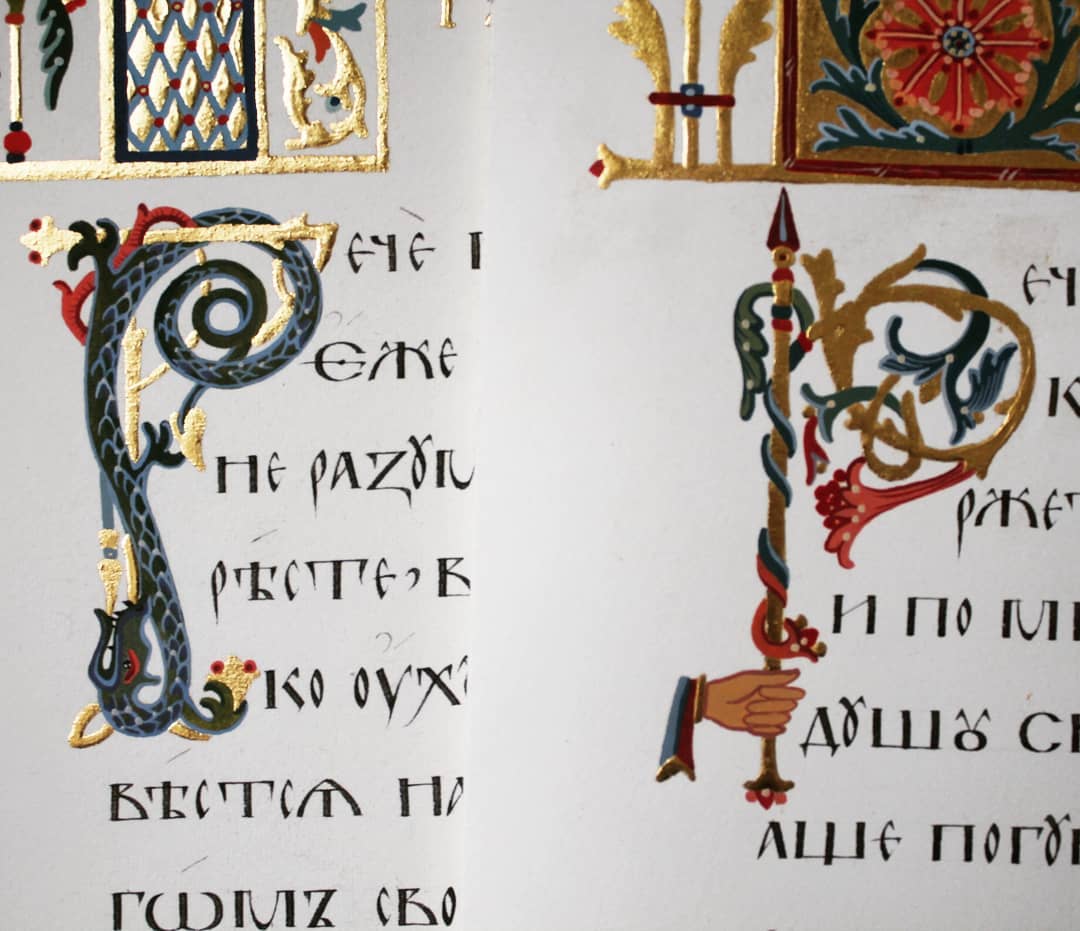 Рече
Єже
не разꙋм
рѣсте, в
ко оух
вѣстсѧ на
гѡмъ сво
Реч
к
ржет
и по м
дꙋшꙋ с
аще погꙋ